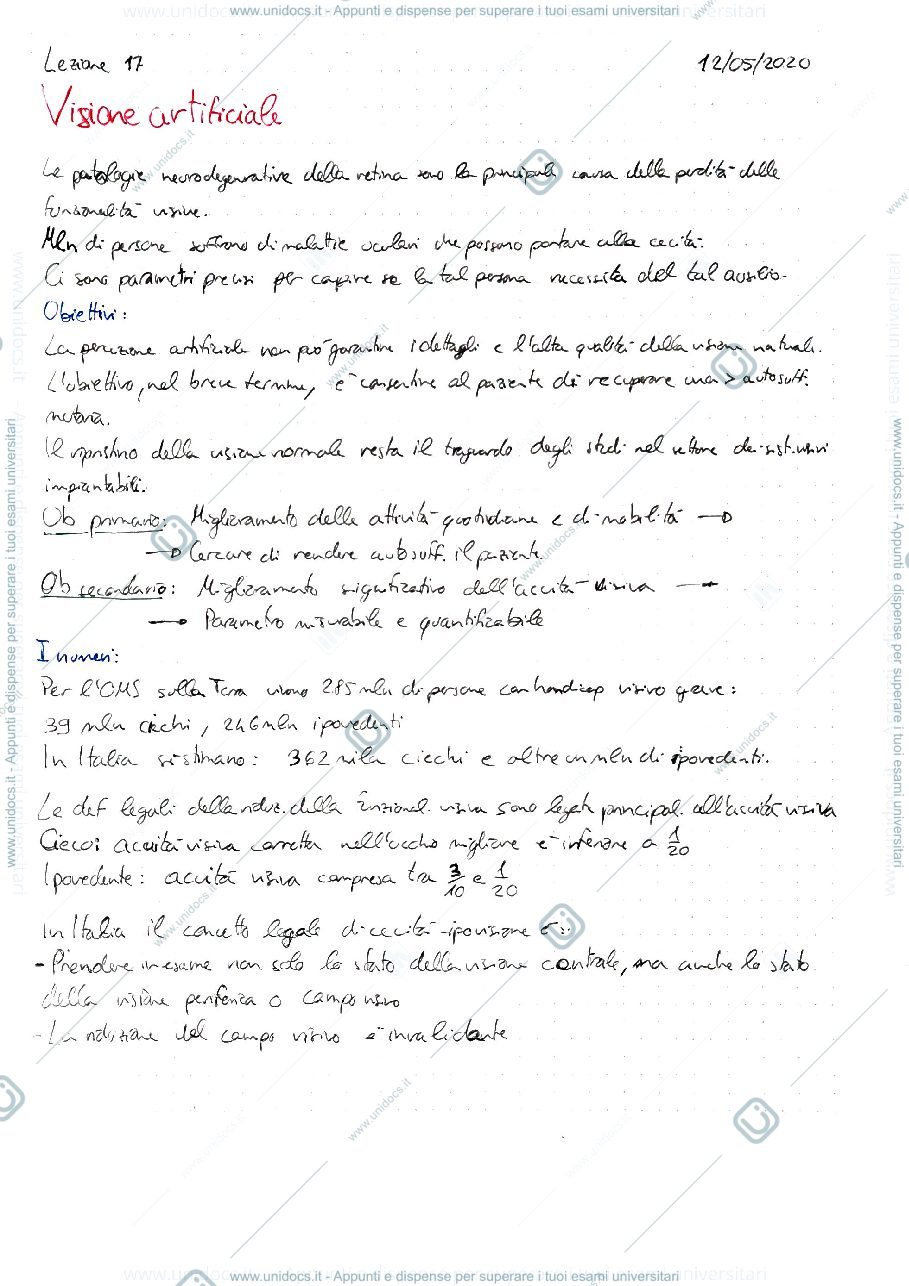 www.unidocs.it - Appunti e dispense per superare i tuoi esami universitari
Lezione 17 12/05/2020
Visione artificiale
Le patologie neurodegenerative della retina sono la principali causa della perdita delle
funzionalità visive.
Mln di persone soffrono di malattie oculari che possono portare alla cecità.
Ci sono parametri precisi per capire se la tal persona necessita del tal ausilio.
Obiettivi:
La percezione artificiale non può garantire i dettagli e l'alta qualità della visione naturale.
L'obiettivo, nel breve termine, è consentire al paziente di recuperare una > autosuff.
motoria.
Il ripristino della visione normale resta il traguardo degli studi nel settore dei sist. visivi
impiantabili.
Ob primario: Miglioramento delle attività quotidiane e di mobilità →
→ Cercare di rendere autosuff. il paziente
Ob secondario: Miglioramento significativo dell'acuità visiva →
→ Parametro misurabile e quantificabile
I numeri:
Per l'OMS sulla Terra vivono 285 mln di persone con handicap visivo grave:
39 mln ciechi, 246 mln ipovedenti
In Italia si stimano: 362 mila ciechi e oltre un mln di ipovedenti.
Le def legali della riduz. della funzional. visiva sono legate principal. all'acuità visiva
Cieco: acuità visiva corretta nell'occhio migliore è inferiore a 1/20
Ipovedente: acuità visiva compresa tra 3/10 e 1/20
In Italia il concetto legale di cecità-ipovisione è:
- Prendere in esame non solo lo stato della visione centrale, ma anche lo stato
della visione periferica o campo visivo
- La riduzione del campo visivo è invalidante
www.unidocs.it - Appunti e dispense per superare i tuoi esami universitari